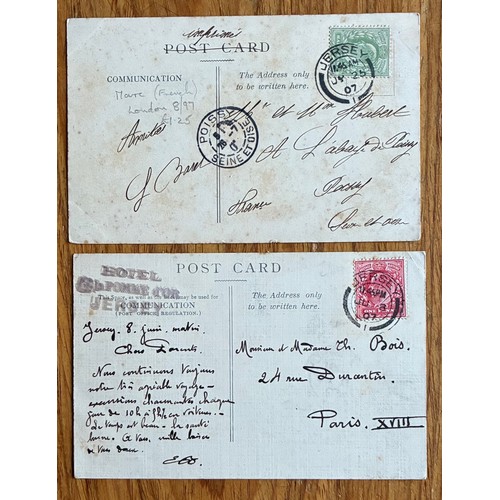 imprimé
POST CARD
COMMUNICATION
The Address only
to be written here.
JERSEY
25
07
1
Marc (French)
London 8/97
£1.25
Amitiés
POISSY
SEINE ET OISE
Mr et Mme Hubert
A l'abbaye de Poissy
Poissy
France
Seine et Oise
POST CARD
HOTEL
POMME D'OR
JERSEY
This Space, as well as the Back, may be used for
COMMUNICATION
(POST OFFICE REGULATION.)
The Address only
to be written here.
JERSEY
07
1
Jersey. 8. juin. matin.
Chers Parents.
Nous continuons toujours
notre très agréable voyage –
excursions charmantes chaque
jour de 10h à en voitures. –
de temps est beau – la santé
bonne. A vous, mille baisers
de vos deux.
Monsieur et Madame Th. Bois.
24 rue Durantin.
Paris. XVIII